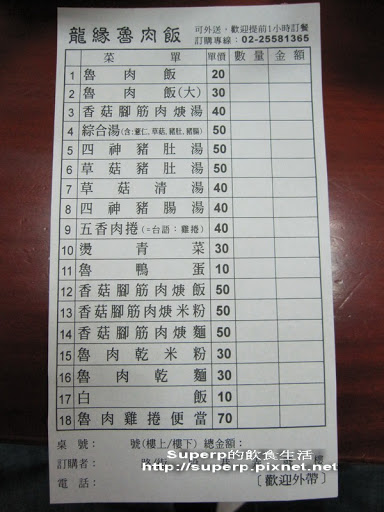 龍緣魯肉飯 可外送，歡迎提前1小時訂餐
訂購專線：02-25581365
菜單 單價 數量 金額
1 魯肉飯 20
2 魯肉飯(大) 30
3 香菇腳筋肉焿湯 40
4 綜合湯(含:薏仁,草菇,豬肚,豬腸) 50
5 四神豬肚湯 50
6 草菇豬肚湯 50
7 草菇清湯 40
8 四神豬腸湯 40
9 五香肉捲(=台語：雞捲) 40
10 燙青菜 30
11 魯鴨蛋 10
12 香菇腳筋肉焿飯 50
13 香菇腳筋肉焿米粉 50
14 香菇腳筋肉焿麵 50
15 魯肉乾米粉 30
16 魯肉乾麵 30
17 白飯 10
18 魯肉雞捲便當 70
桌號： 號(樓上/樓下) 總金額：
訂購者： 樓
電話： 〔歡迎外帶〕
Superp的飲食生活
http://superp.pixnet.net